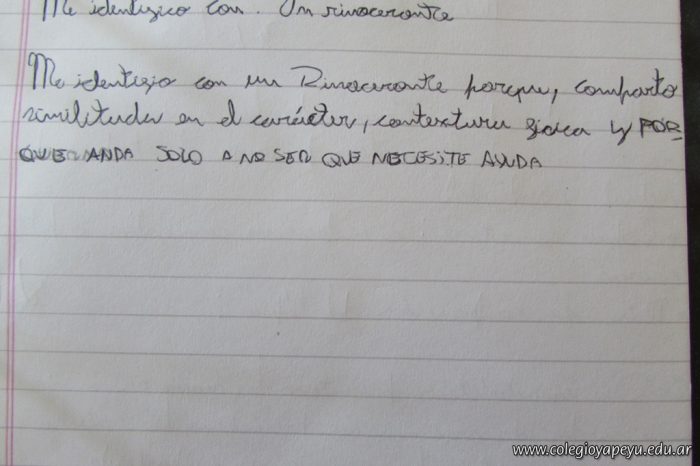 Me identifico con. Un rinocerante
Me identifio con un Rinocerante porque, comparto
similitudes en el carácter, contextura fisica y POR-
QUE ANDA SOLO A NO SER QUE NECESITE AYUDA
www.colegioyapeyu.edu.ar